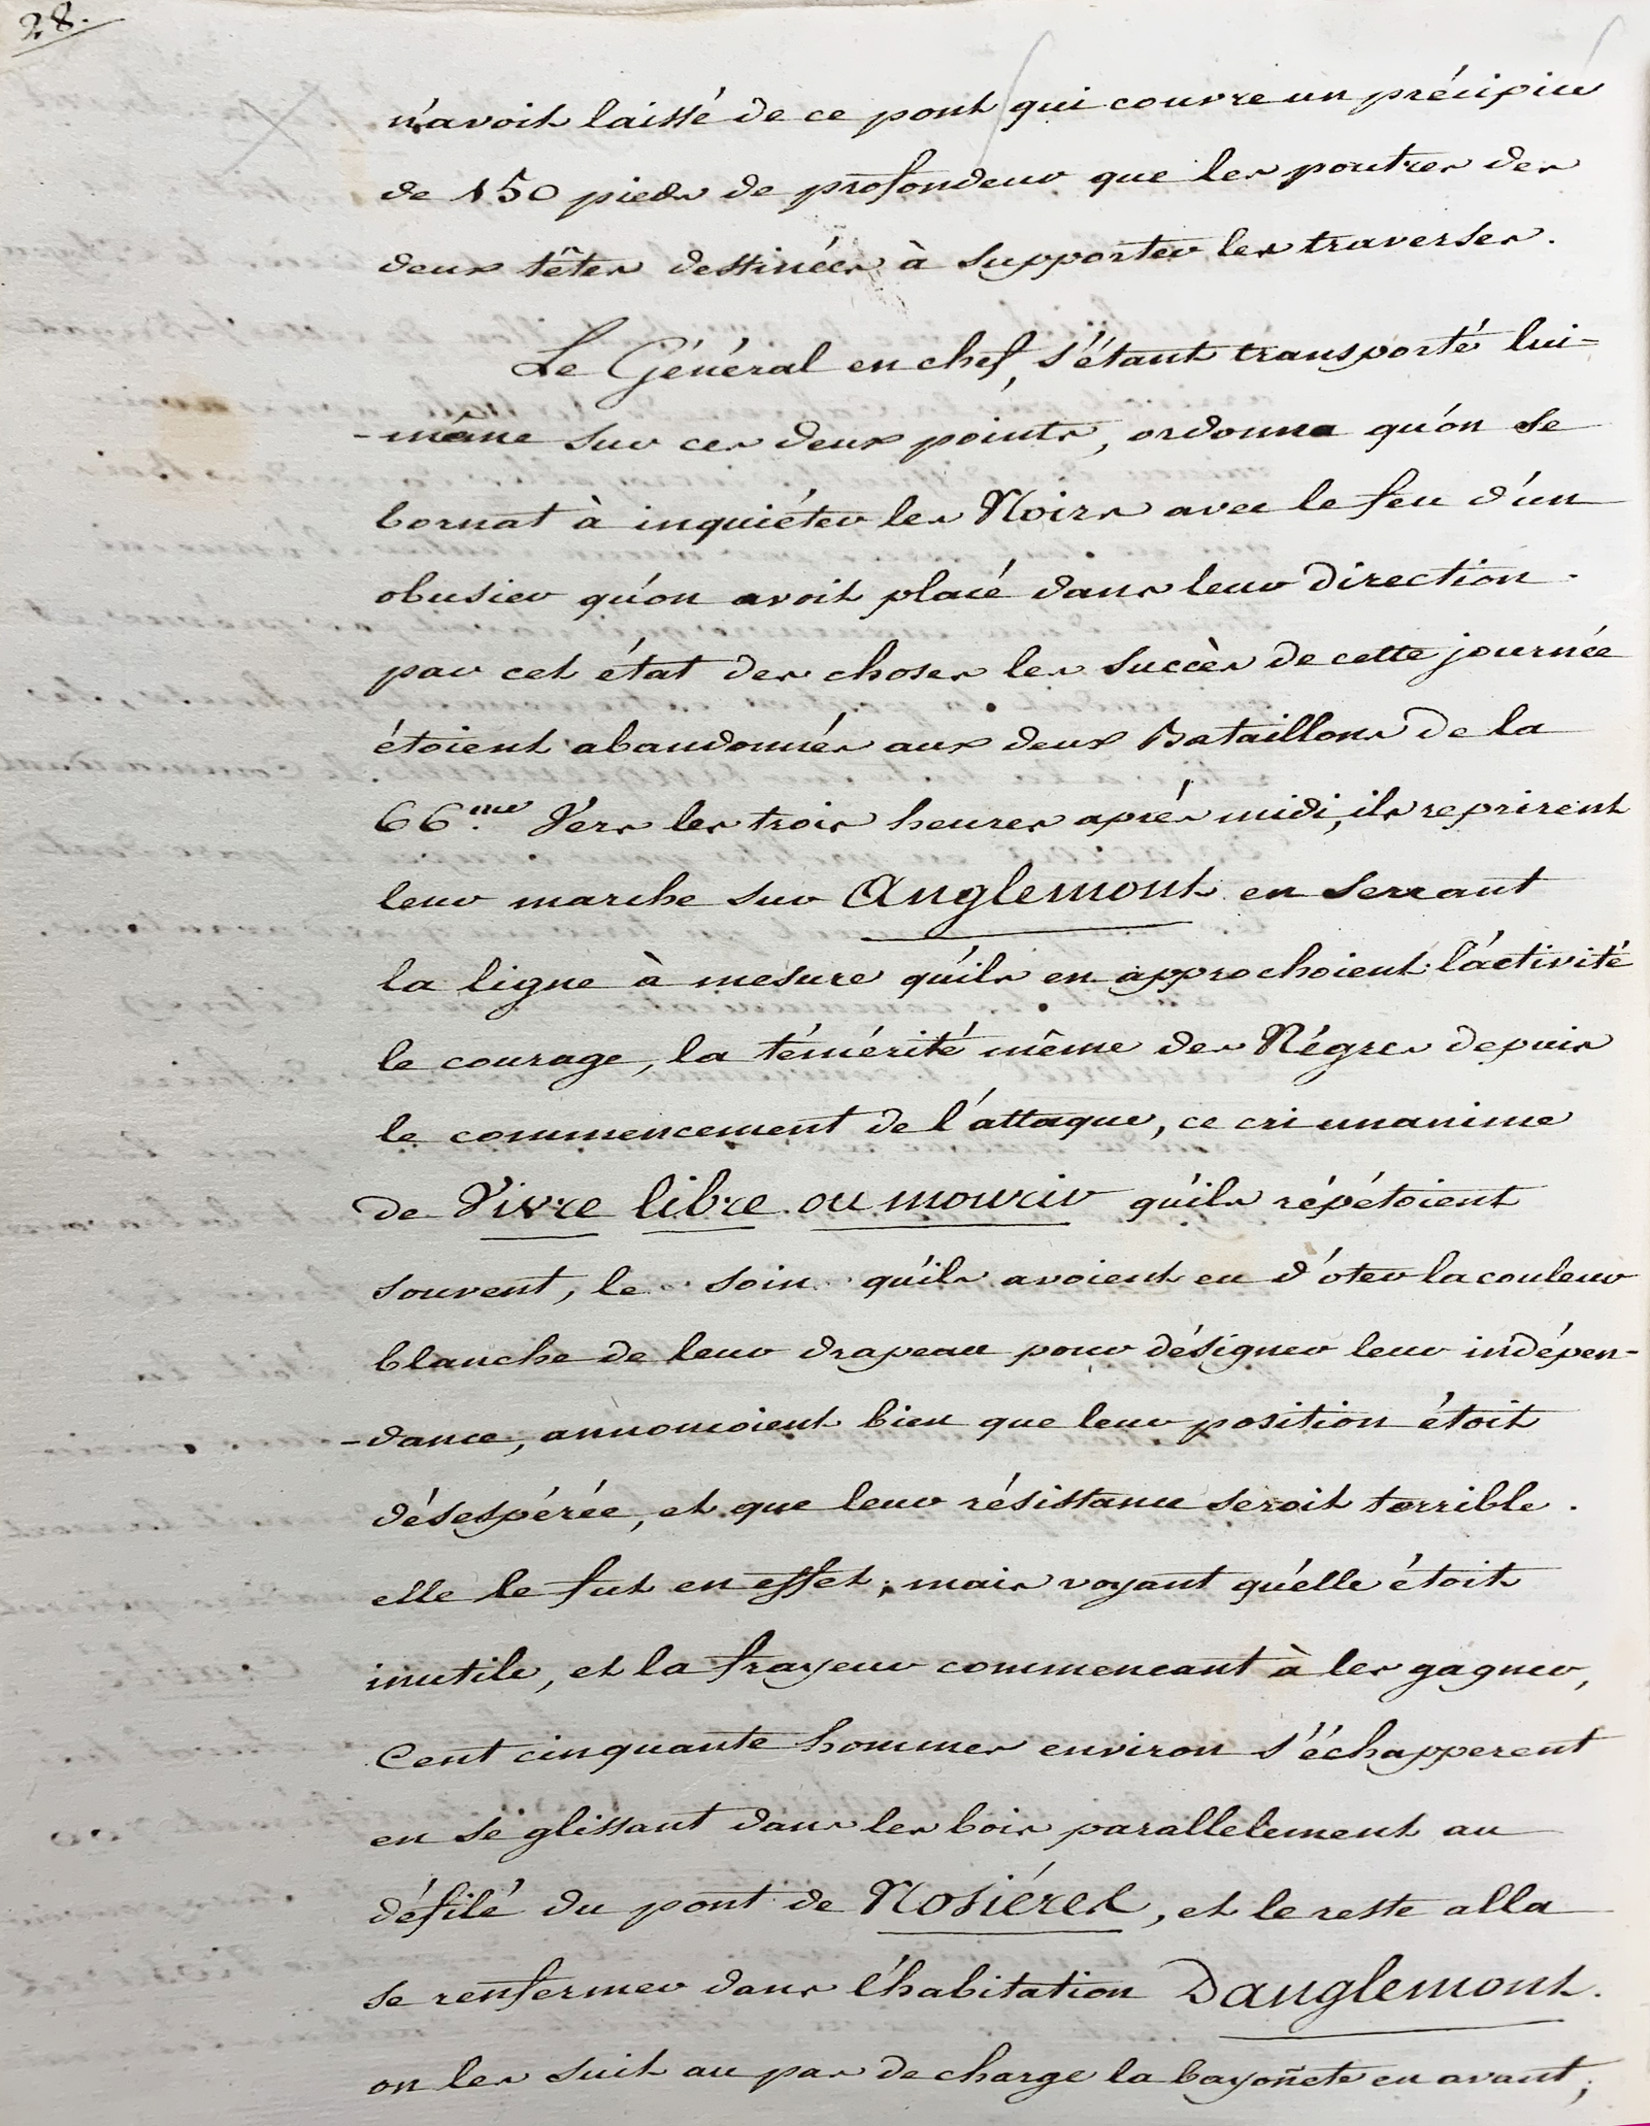 28.
n'avoit laissé de ce pont qui couvre un précipice
de 150 pieds de profondeur que les poutres des
deux têtes destinées à supporter les traverses.
Le Général en chef, s'étant transporté lui=
-même sur ces deux points, ordonna qu'on se
bornat à inquiéter les Noirs avec le feu d'un
obusier qu'on avoit placé dans leur direction.
par cet état des choses les succès de cette journée
étoient abandonnés aux deux Bataillons de la
66.me Vers les trois heures après midi, ils reprirent
leur marche sur Anglemont en serrant
la ligne à mesure qu'ils en approchoient. l'activité
le courage, la témérité même des Négres depuis
le commencement de l'attaque, ce cri unanime
de Vivre libre ou mourir qu'ils répétoient
souvent, le soin qu'ils avoient eu d'oter la couleur
blanche de leur drapeau pour désigner leur indépen-
-dance, annoncoient bien que leur position étoit
désespérée, et que leur résistance seroit terrible.
elle le fut en effet; mais voyant qu'elle étoit
inutile, et la frayeur commencant à les gagner,
Cent cinquante hommes environ s'échapperent
en se glissant dans les bois parallelement au
défilé du pont de Nosiérel, et le reste alla
se renfermer dans l'habitation Danglemont.
on les suit au pas de charge la bayoñete en avant;